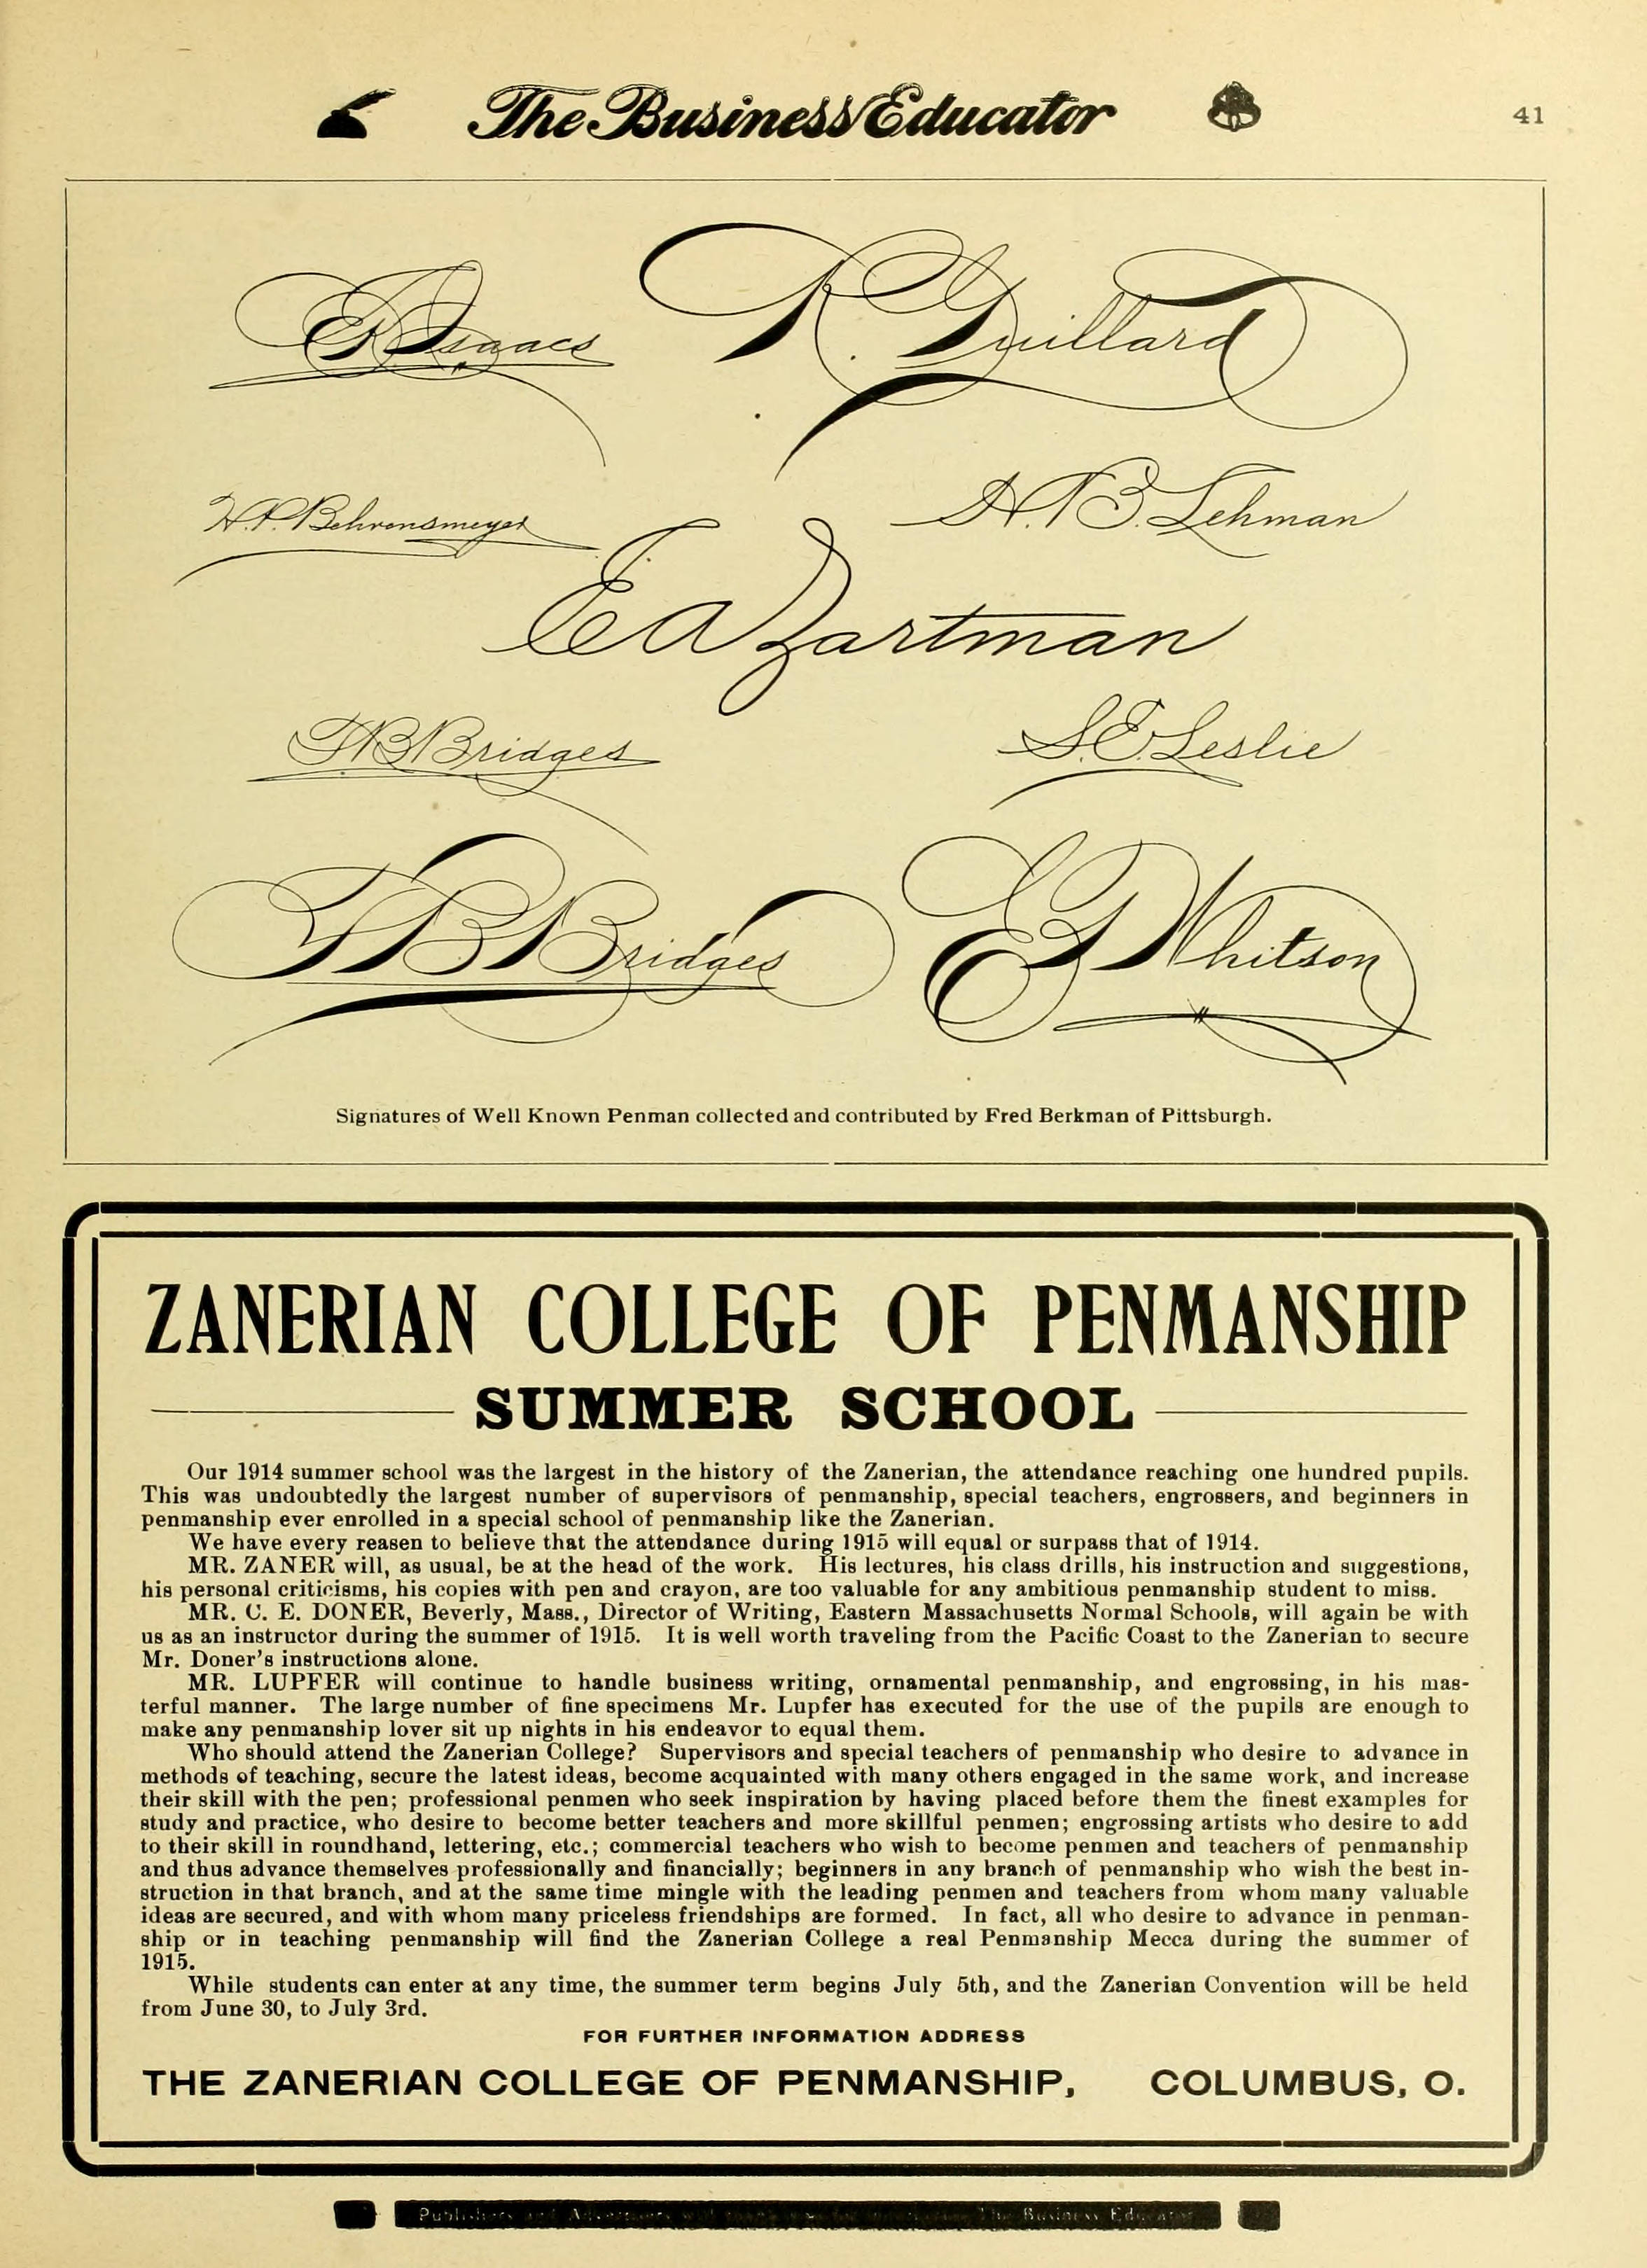 The Business Educator
41
R. Guillard
H. P. Behrensmeyer
H. B. Lehman
E A Zartman
S. E. Leslie
Bridges
Bridges
Whitson
Signatures of Well Known Penman collected and contributed by Fred Berkman of Pittsburgh.
ZANERIAN COLLEGE OF PENMANSHIP
SUMMER SCHOOL
Our 1914 summer school was the largest in the history of the Zanerian, the attendance reaching one hundred pupils.
This was undoubtedly the largest number of supervisors of penmanship, special teachers, engrossers, and beginners in
penmanship ever enrolled in a special school of penmanship like the Zanerian.
We have every reasen to believe that the attendance during 1915 will equal or surpass that of 1914.
MR. ZANER will, as usual, be at the head of the work. His lectures, his class drills, his instruction and suggestions,
his personal criticisms, his copies with pen and crayon, are too valuable for any ambitious penmanship student to miss.
MR. C. E. DONER, Beverly, Mass., Director of Writing, Eastern Massachusetts Normal Schools, will again be with
us as an instructor during the summer of 1915. It is well worth traveling from the Pacific Coast to the Zanerian to secure
Mr. Doner's instructions alone.
MR. LUPFER will continue to handle business writing, ornamental penmanship, and engrossing, in his mas-
terful manner. The large number of fine specimens Mr. Lupfer has executed for the use of the pupils are enough to
make any penmanship lover sit up nights in his endeavor to equal them.
Who should attend the Zanerian College? Supervisors and special teachers of penmanship who desire to advance in
methods of teaching, secure the latest ideas, become acquainted with many others engaged in the same work, and increase
their skill with the pen; professional penmen who seek inspiration by having placed before them the finest examples for
study and practice, who desire to become better teachers and more skillful penmen; engrossing artists who desire to add
to their skill in roundhand, lettering, etc.; commercial teachers who wish to become penmen and teachers of penmanship
and thus advance themselves professionally and financially; beginners in any branch of penmanship who wish the best in-
struction in that branch, and at the same time mingle with the leading penmen and teachers from whom many valuable
ideas are secured, and with whom many priceless friendships are formed. In fact, all who desire to advance in penman-
ship or in teaching penmanship will find the Zanerian College a real Penmanship Mecca during the summer of
1915.
While students can enter at any time, the summer term begins July 5th, and the Zanerian Convention will be held
from June 30, to July 3rd.
FOR FURTHER INFORMATION ADDRESS
THE ZANERIAN COLLEGE OF PENMANSHIP, COLUMBUS, O.
The Business Educator